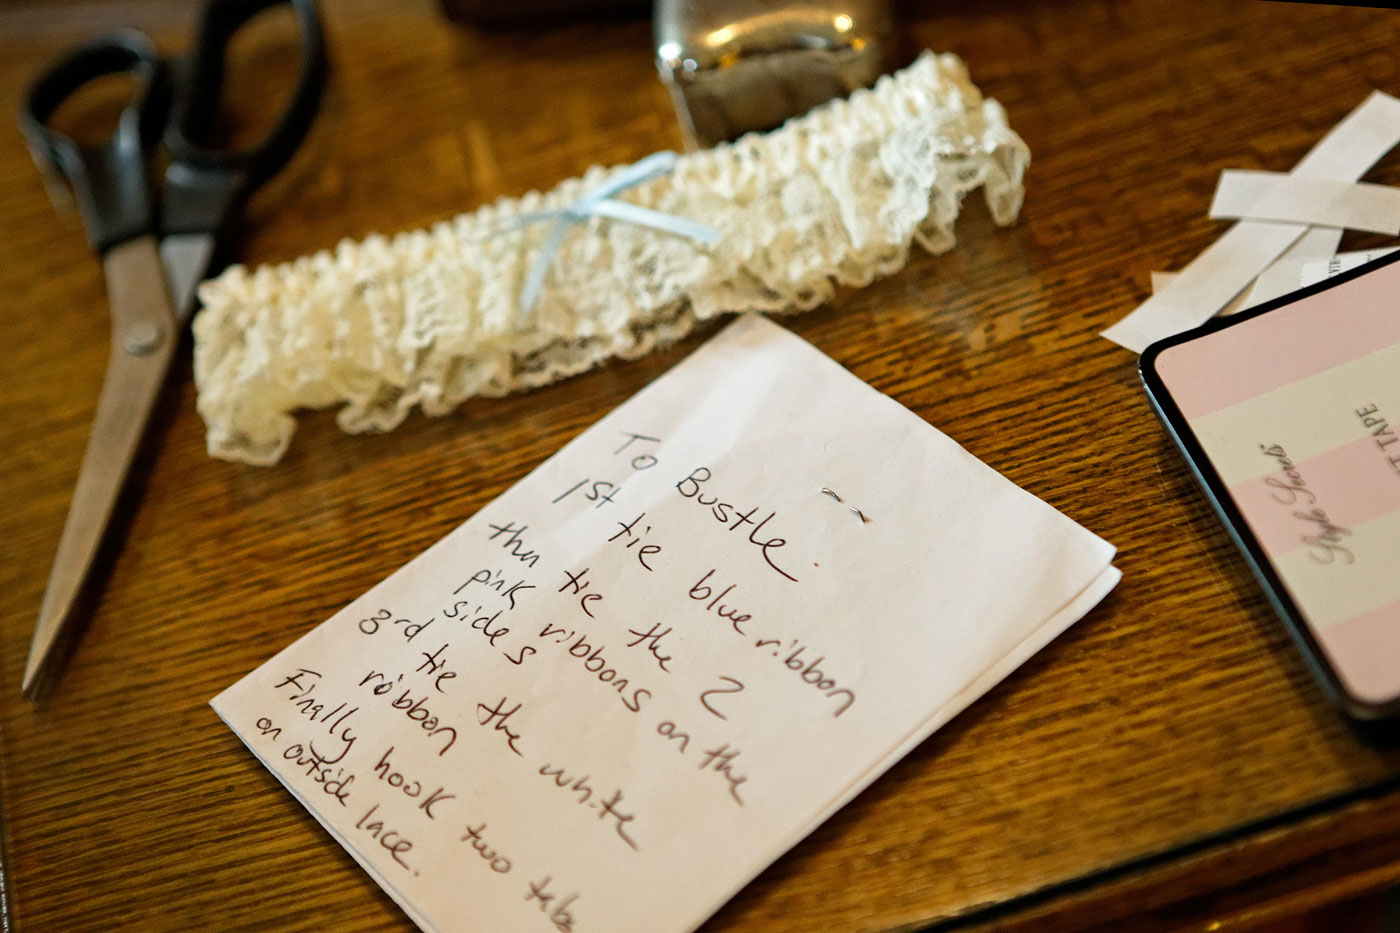 To Bustle.
1st tie blue ribbon
thn tie the 2
pink ribbons on the
sides
3rd tie the white
ribbon
Finally hook two tabs
on outside lace.
TAPE